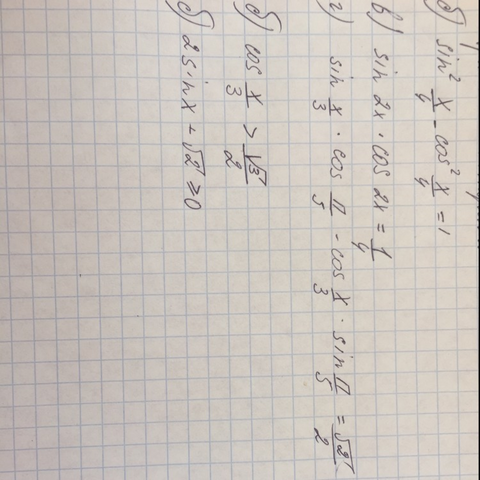 б) sin² x/4 - cos² x/4 = 1
в) sin 2x · cos 2x = 1/4
г) sin x/3 · cos π/5 - cos x/3 · sin π/5 = √2/2
б) cos x/3 > √3/2
б) 2 sin x + √2 ≥ 0